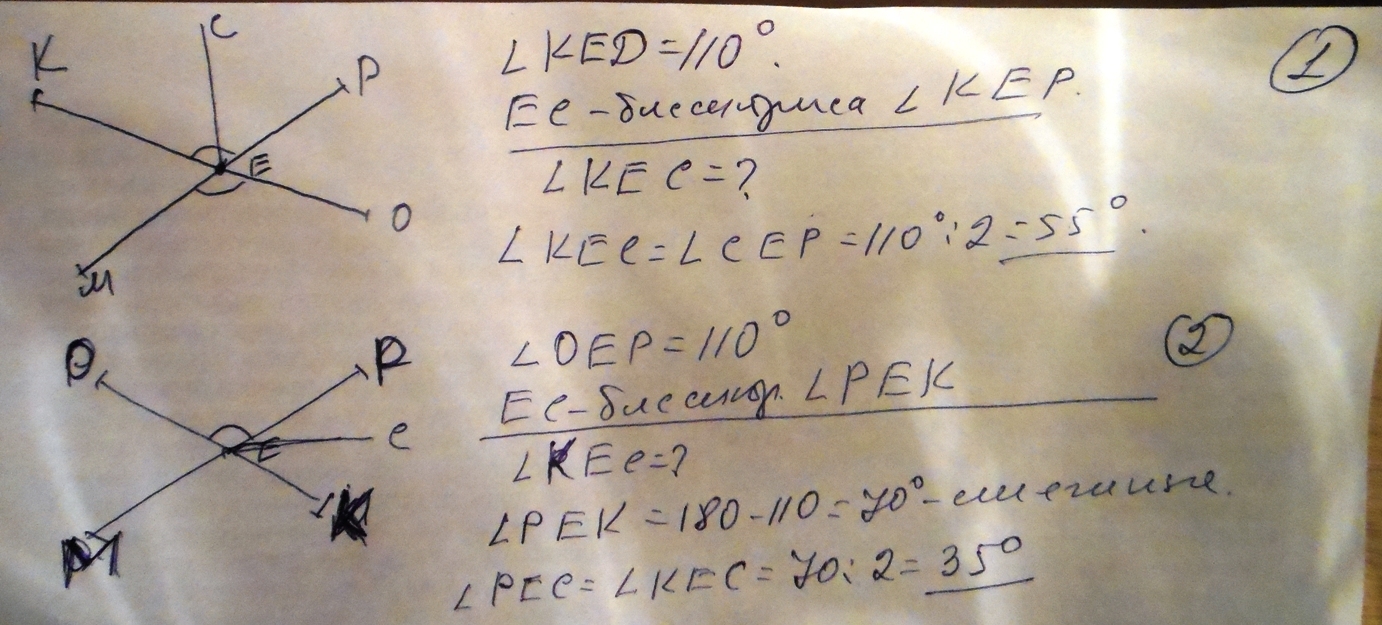 K
C
P
E
O
M
∠KED=110°.
EC-биссектриса ∠KEP.
∠KEC=?
∠KEC=∠CEP=110°:2=55°.
1
O
P
E
C
M
K
∠OEP=110°
EC-биссектр. ∠PEK
∠KEC=?
∠PEK=180-110=70°-смежные.
∠PEC=∠KEC=70:2=35°
2